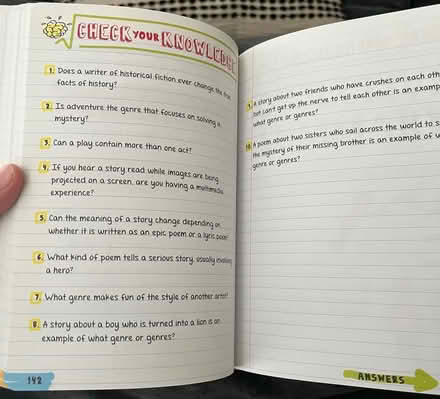 CHECK YOUR KNOWLEDGE
1. Does a writer of historical fiction ever change the true
facts of history?
2. Is adventure the genre that focuses on solving a
mystery?
3. Can a play contain more than one act?
4. If you hear a story read while images are being
projected on a screen, are you having a multimedia
experience?
5. Can the meaning of a story change depending on
whether it is written as an epic poem or a lyric poem?
6. What kind of poem tells a serious story, usually involving
a hero?
7. What genre makes fun of the style of another artist?
8. A story about a boy who is turned into a lion is an
example of what genre or genres?
142
9. A story about two friends who have crushes on each oth
but can't get up the nerve to tell each other is an examp
what genre or genres?
10. A poem about two sisters who sail across the world to s
the mystery of their missing brother is an example of w
genre or genres?
ANSWERS